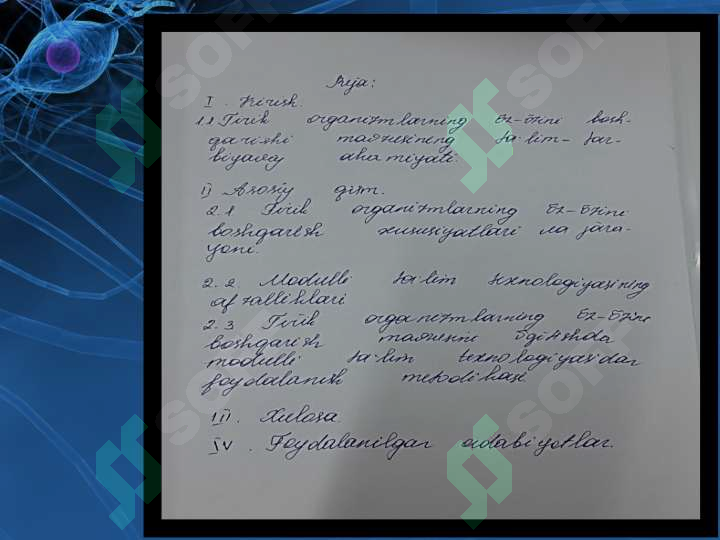 Reja:
I. Kirish.
1.1 Tirik organizmlarning öz-özini bosh-
qarishi mavzusining ta'lim-tar-
biyaviy ahamiyati.
II Asosiy qism.
2.1 Tirik organizmlarning öz-özini
boshqarish xususiyatlari va jära-
yoni.
2.2. Modulli ta'lim texnologiyasining
afzalliklari
2.3 Tirik organizmlarning öz-özini
boshqarish mavzusini ögitishda
modulli ta'lim texnologiyasidan
foydalanish metodikasi
III. Xulosa.
IV. Foydalanilgan adabiyotlar.
SOFF
SOFF
SOFF
SOFF
SOFF